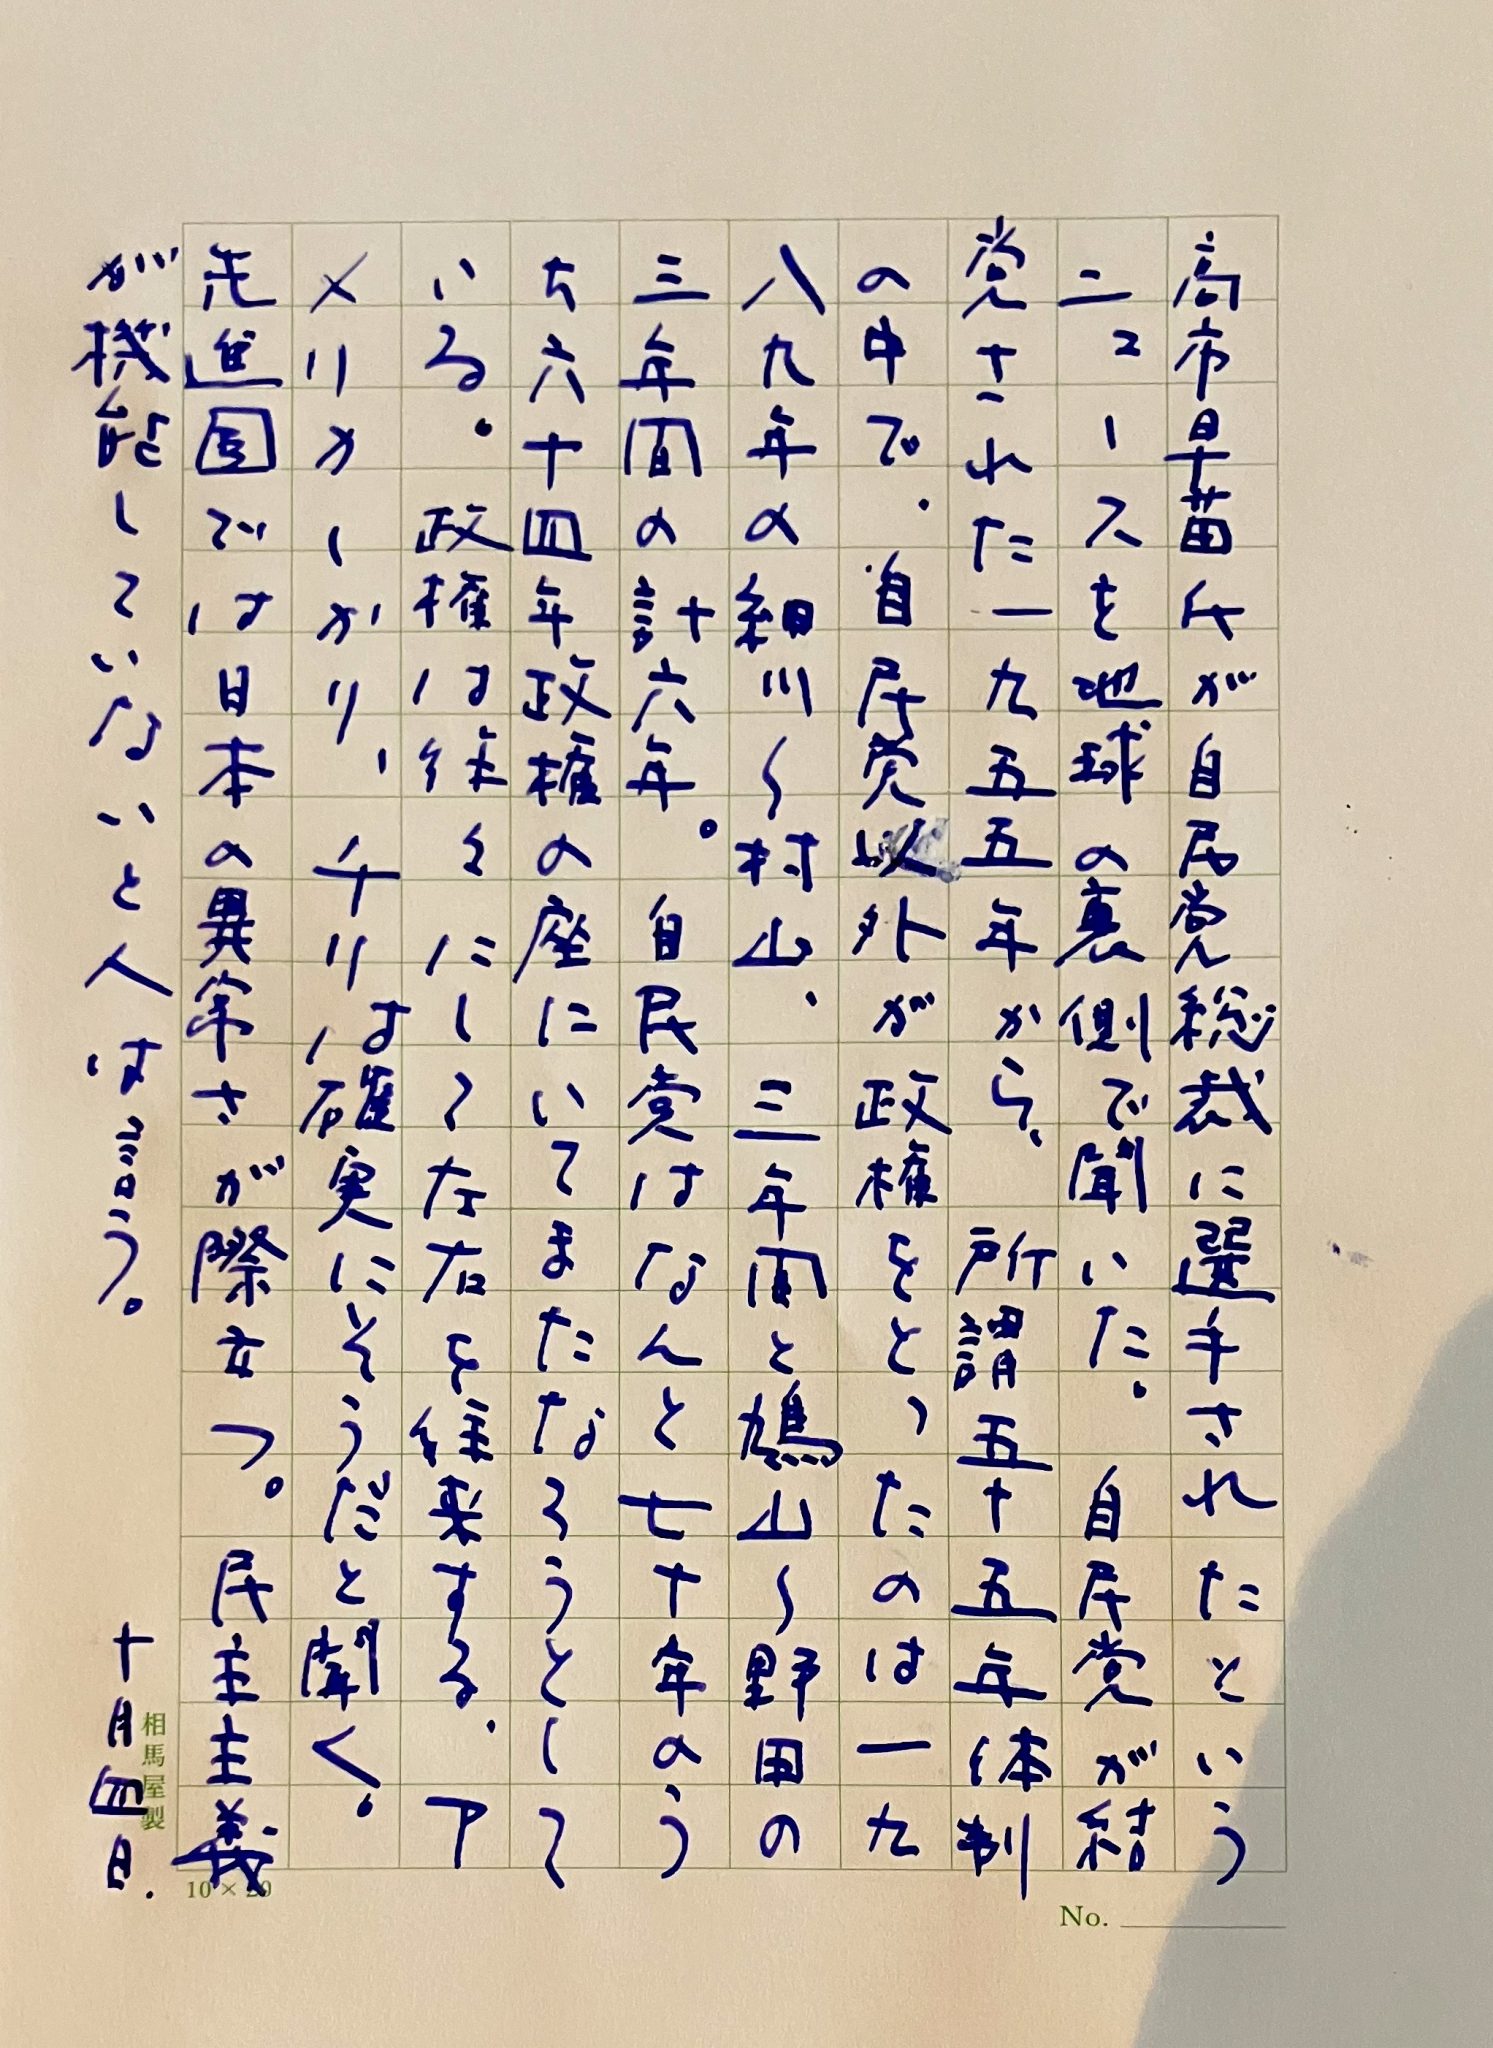 高市早苗氏が自民党総裁に選手されたという
ニュースを地球の裏側で聞いた。自民党が結
党された一九五五年から、所謂五十五年体制
の中で、自民党以外が政権をとったのは一九
八九年の細川〜村山、三年間と鳩山〜野田の
三年間の計六年。自民党はなんと七十年のう
ち六十四年政権の座にいてまたなろうとして
いる。政権は徐々にして左右を往来する。ア
メリカしかり、チリは確実にそうだと聞く。
先進国では日本の異常さが際立つ。民主主義
が機能していないと人は言う。
十月四日.
相馬屋製
10×20
No.